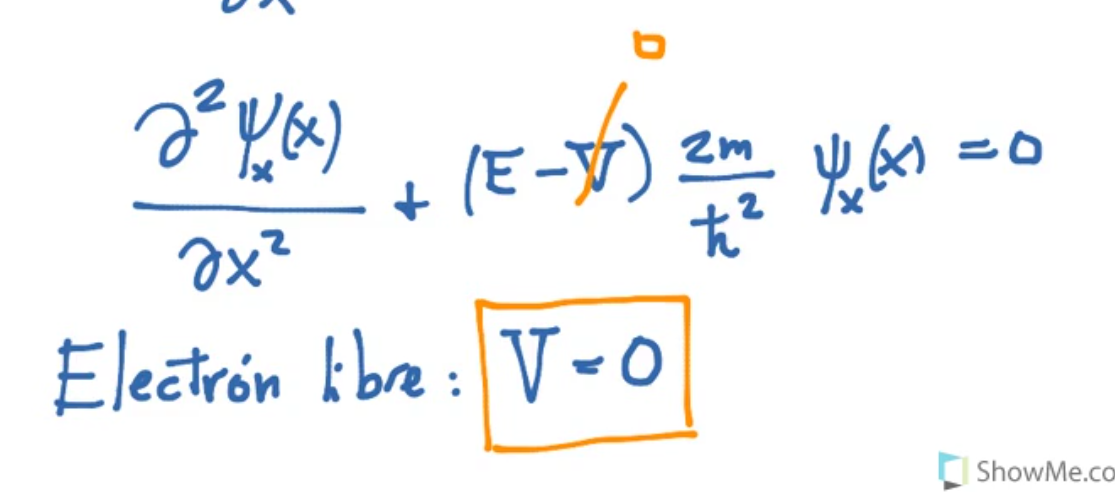 0
∂²ψₓ(x)/∂x² + (E - V) 2m/ħ² ψₓ(x) = 0
Electrón libre: V = 0
ShowMe.co